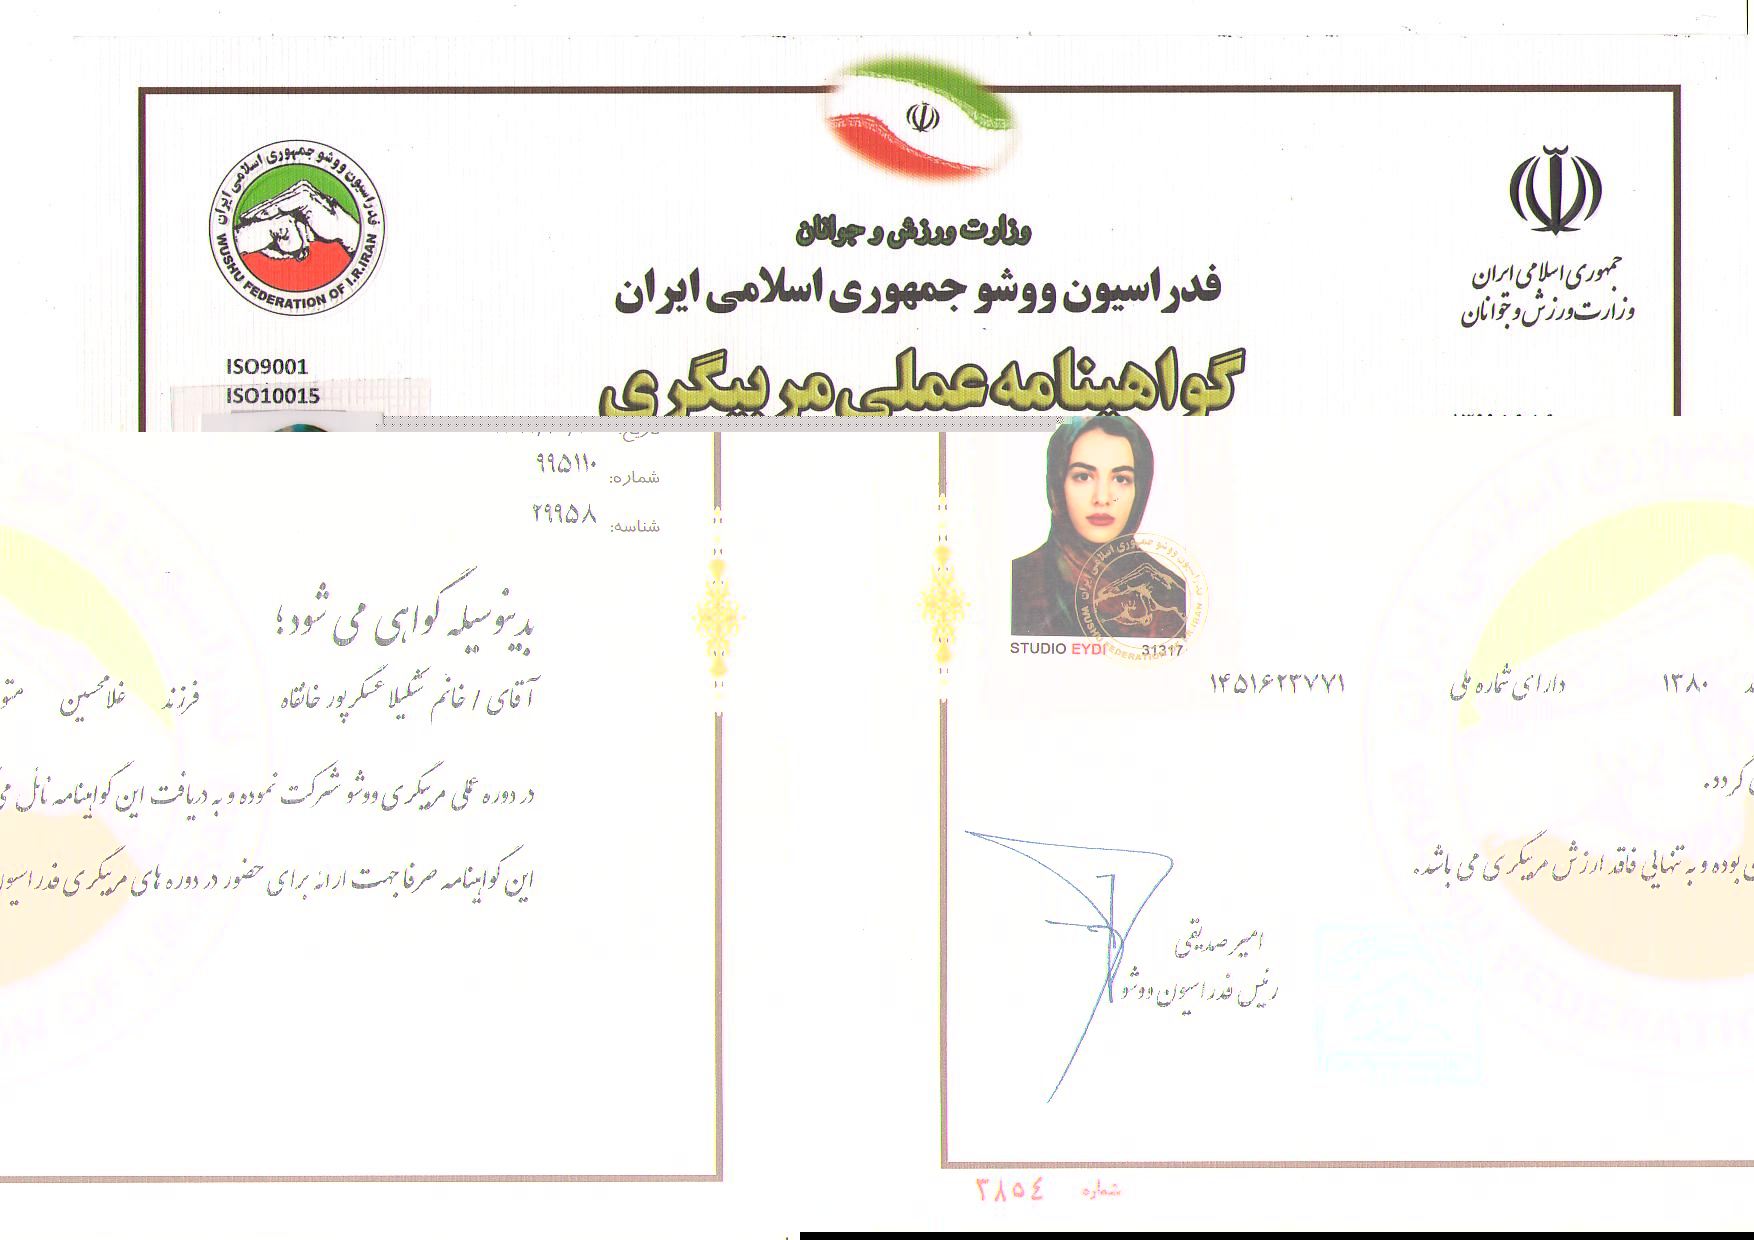 وزارت ورزش و جوانان
فدراسیون ووشو جمهوری اسلامی ایران
گواهینامه عملی مربیگری
فدراسیون ووشو جمهوری اسلامی ایران
WUSHU FEDERATION OF I.R.IRAN
جمهوری اسلامی ایران
وزارت ورزش و جوانان
ISO9001
ISO10015
تاریخ:
شماره: ۹۹۵۱۱۰
شناسه: ۲۹۹۵۸
بدینوسیله گواهی می شود؛
آقای / خانم شکیلا عسکرپور خانقاه فرزند غلامحسین
۱۳۸۰ دارای شماره ملی ۱۴۵۱۶۲۳۷۷۱
در دوره عملی مربیگری ووشو شرکت نموده و به دریافت این گواهینامه نائل می
گردد.
این گواهینامه صرفا جهت ارائه برای حضور در دوره های مربیگری فدراسیون
بوده و به تنهایی فاقد ارزش مربیگری می باشد.
STUDIO EYDI 31317
فدراسیون ووشو جمهوری اسلامی ایران
WUSHU FEDERATION OF I.R.IRAN
امیر صدیقی
رئیس فدراسیون ووشو
شماره ۳۸۵۴